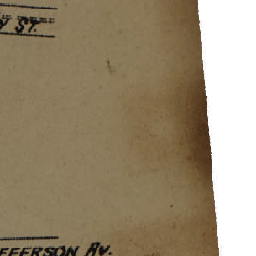 Y ST.
EFFERSON AV.